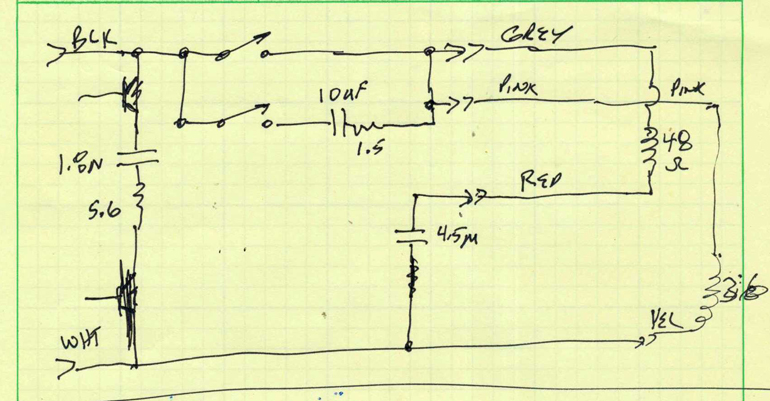 BLK
GREY
10uF
PINK
PINK
1.5
48
Ω
1.8N
RED
5.6
4.5M
YEL
WHT